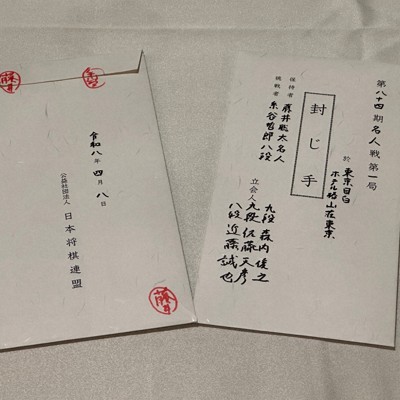 第八十四期名人戦第一局
於 東京目白
ホテル椿山荘東京
封じ手
保持者 藤井聡太名人
挑戦者 糸谷哲郎八段
立会人 九段 森内俊之
九段 佐藤天彦
八段 近藤誠也
令和八年四月八日
公益社団法人 日本将棋連盟
藤井
藤井